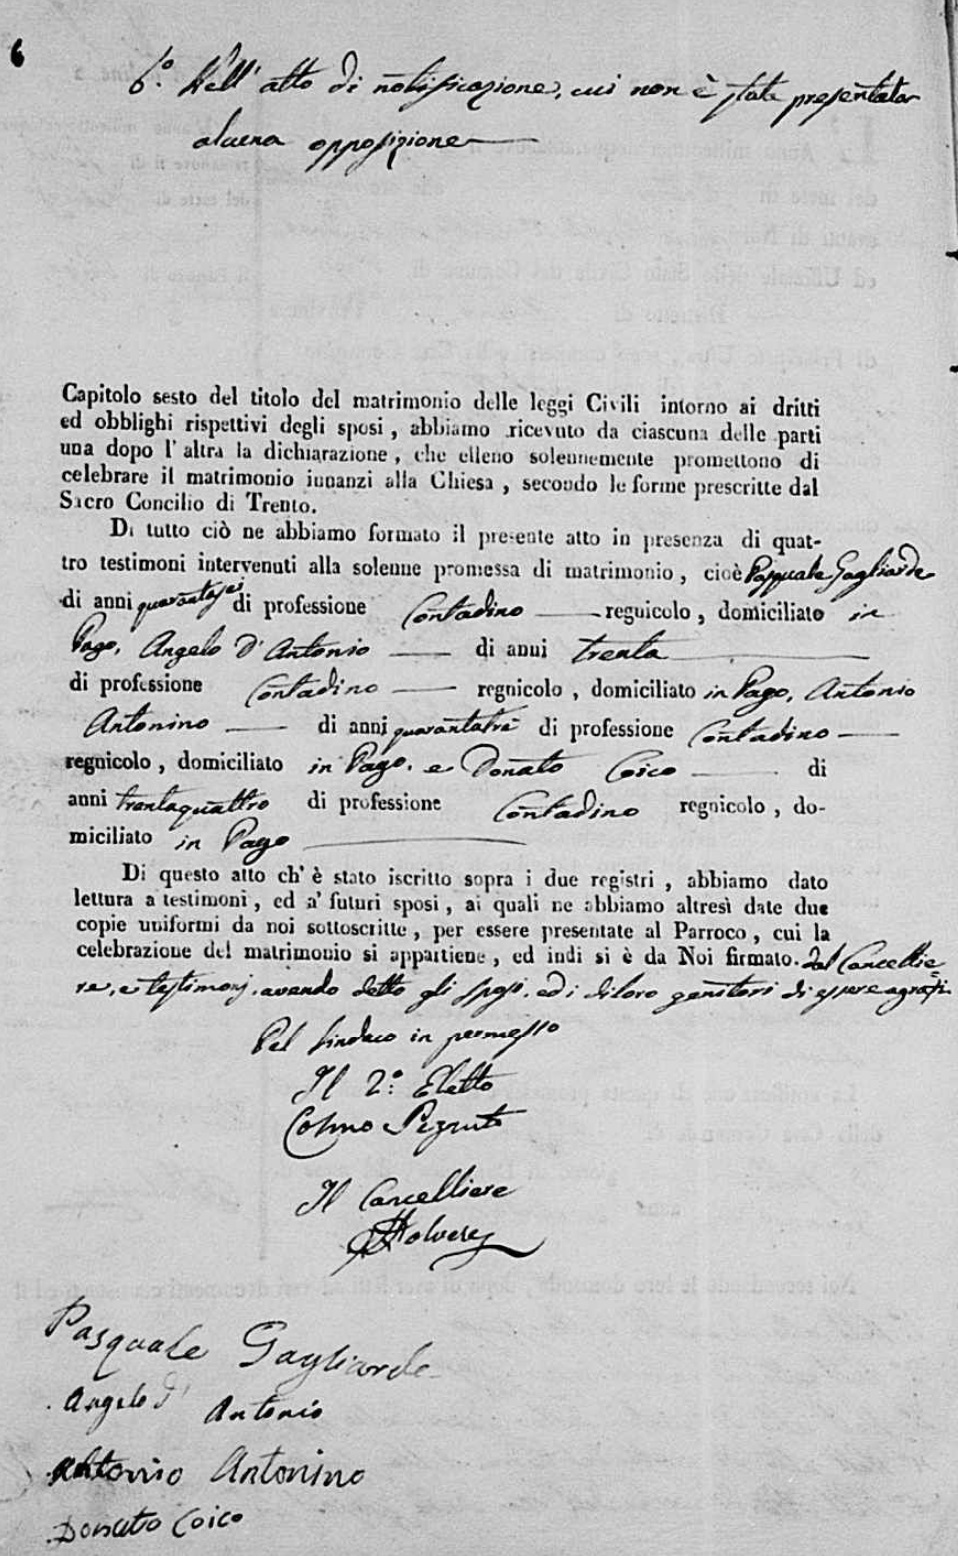 6
6.° Dell' atto di notificazione, cui non è stata presentata
alcuna opposizione
Capitolo sesto del titolo del matrimonio delle leggi Civili intorno ai dritti
ed obblighi rispettivi degli sposi, abbiamo ricevuto da ciascuna delle parti
una dopo l'altra la dichiarazione, che elleno solennemente promettono di
celebrare il matrimonio innanzi alla Chiesa, secondo le forme prescritte dal
Sacro Concilio di Trento.
Di tutto ciò ne abbiamo formato il presente atto in presenza di quat-
tro testimoni intervenuti alla solenne promessa di matrimonio, cioè Pasquale Gagliarde
di anni quarantasei di professione Contadino regnicolo, domiciliato in
Pago, Angelo d'Antonio di anni trenta
di professione Contadino regnicolo, domiciliato in Pago, Antonio
Antonino di anni quarantatrè di professione Contadino
regnicolo, domiciliato in Pago, e Donato Coico di
anni trentaquattro di professione Contadino regnicolo, do-
miciliato in Pago
Di questo atto ch' è stato iscritto sopra i due registri, abbiamo dato
lettura a testimoni, ed a' futuri sposi, ai quali ne abbiamo altresì date due
copie uniformi da noi sottoscritte, per essere presentate al Parroco, cui la
celebrazione del matrimonio si appartiene, ed indi si è da Noi firmato. dal Cancellie=
re, e testimonj, avendo detto gli sposi, ed i di loro genitori di essere
Pel Sindaco in permesso
Il 2.° Eletto
Cosmo
Il Cancelliere
Pasquale Gagliarde
Angelo d' Antonio
Antonio Antonino
Donato Coico